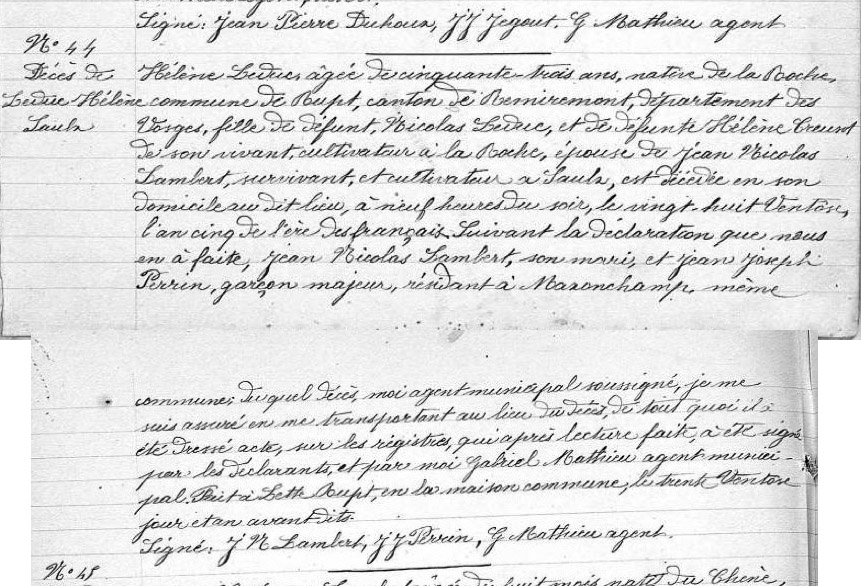 Signé: Jean Pierre Duhoux, JJ Jegout. G Mathieu agent
N° 44
Décès de
Leduc Hélène
Saulx
Hélène Leduc, âgée de cinquante-trois ans, native de la Roche,
commune de Rupt, canton de Remiremont, département des
Vosges, fille de défunt, Nicolas Leduc, et de défunte Hélène Creusot
de son vivant, cultivateur à la Roche, épouse de Jean Nicolas
Lambert, survivant, et cultivateur à Saulx, est décédée en son
domicile au dit lieu, à neuf heures du soir, le vingt-huit Ventôse,
l'an cinq de l'ère des français, Suivant la déclaration que nous
en à faite, Jean Nicolas Lambert, son mari, et Jean Joseph
Perrin, garçon majeur, résidant à Maxonchamp, même
commune; du quel décès, moi agent municipal soussigné, je me
suis assuré en me transportant au lieu du décès, de tout quoi il à
été dressé acte, sur les régistres, qui après lecture faite, à été signé
par les déclarants, et par moi Gabriel Mathieu agent munici-
pal. Fait à Lette Rupt, en la maison commune, le trente Ventôse
jour et an avant dits.
Signé: J N Lambert, JJ Perrin, G Mathieu agent.
N° 45
huit mois, natif du Chêne,